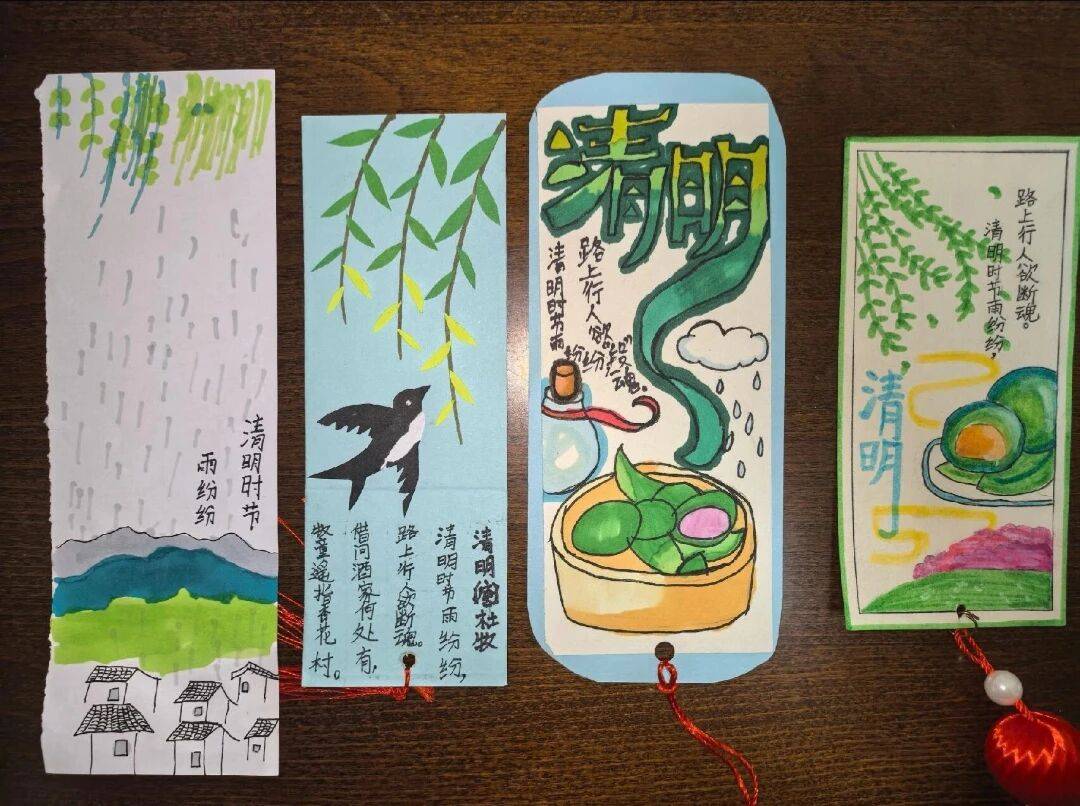 清明时节
雨纷纷
清明 杜牧
清明时节雨纷纷,
路上行人欲断魂。
借问酒家何处有,
牧童遥指杏花村。
清明
清明时节雨纷纷
路上行人欲段魂.
清明时节雨纷纷,
路上行人欲断魂。
清明